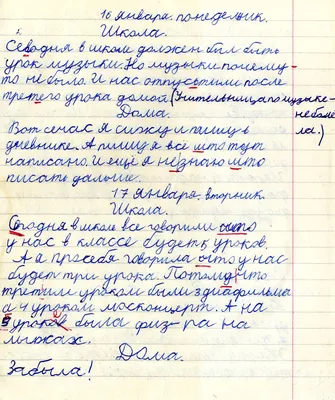 16 января понедельник.
Школа.
Севодня в школе должен был быть
урок музыки. Но музыки почему-
то не было. И нас отпустили после
третего урока домой (Учительницы по музыке
Дома. не было.)
Вот сечас я сижу и пишу в
дневнике. А пишу я всё што тут
написано. И ещё я незнаю што
писать дальше.
17 января, вторник.
Школа.
Сегодня в школе все говорили што
у нас в классе будет 5 уроков.
А я про себя говорила што у нас
будет три урока. Потому што
третим уроком были 3 диафильма
а 4 уроком москонцерт. А на
5 уроке была физ-ра на
лыжах.
Дома.
Забыла!